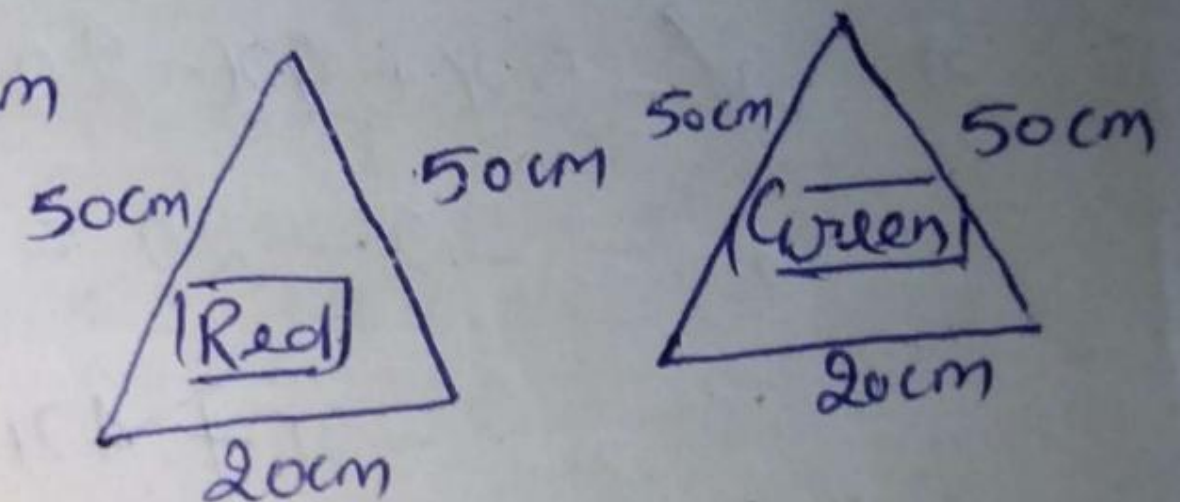 m
50cm
50cm
Red
20cm
50cm
50cm
Green
20cm